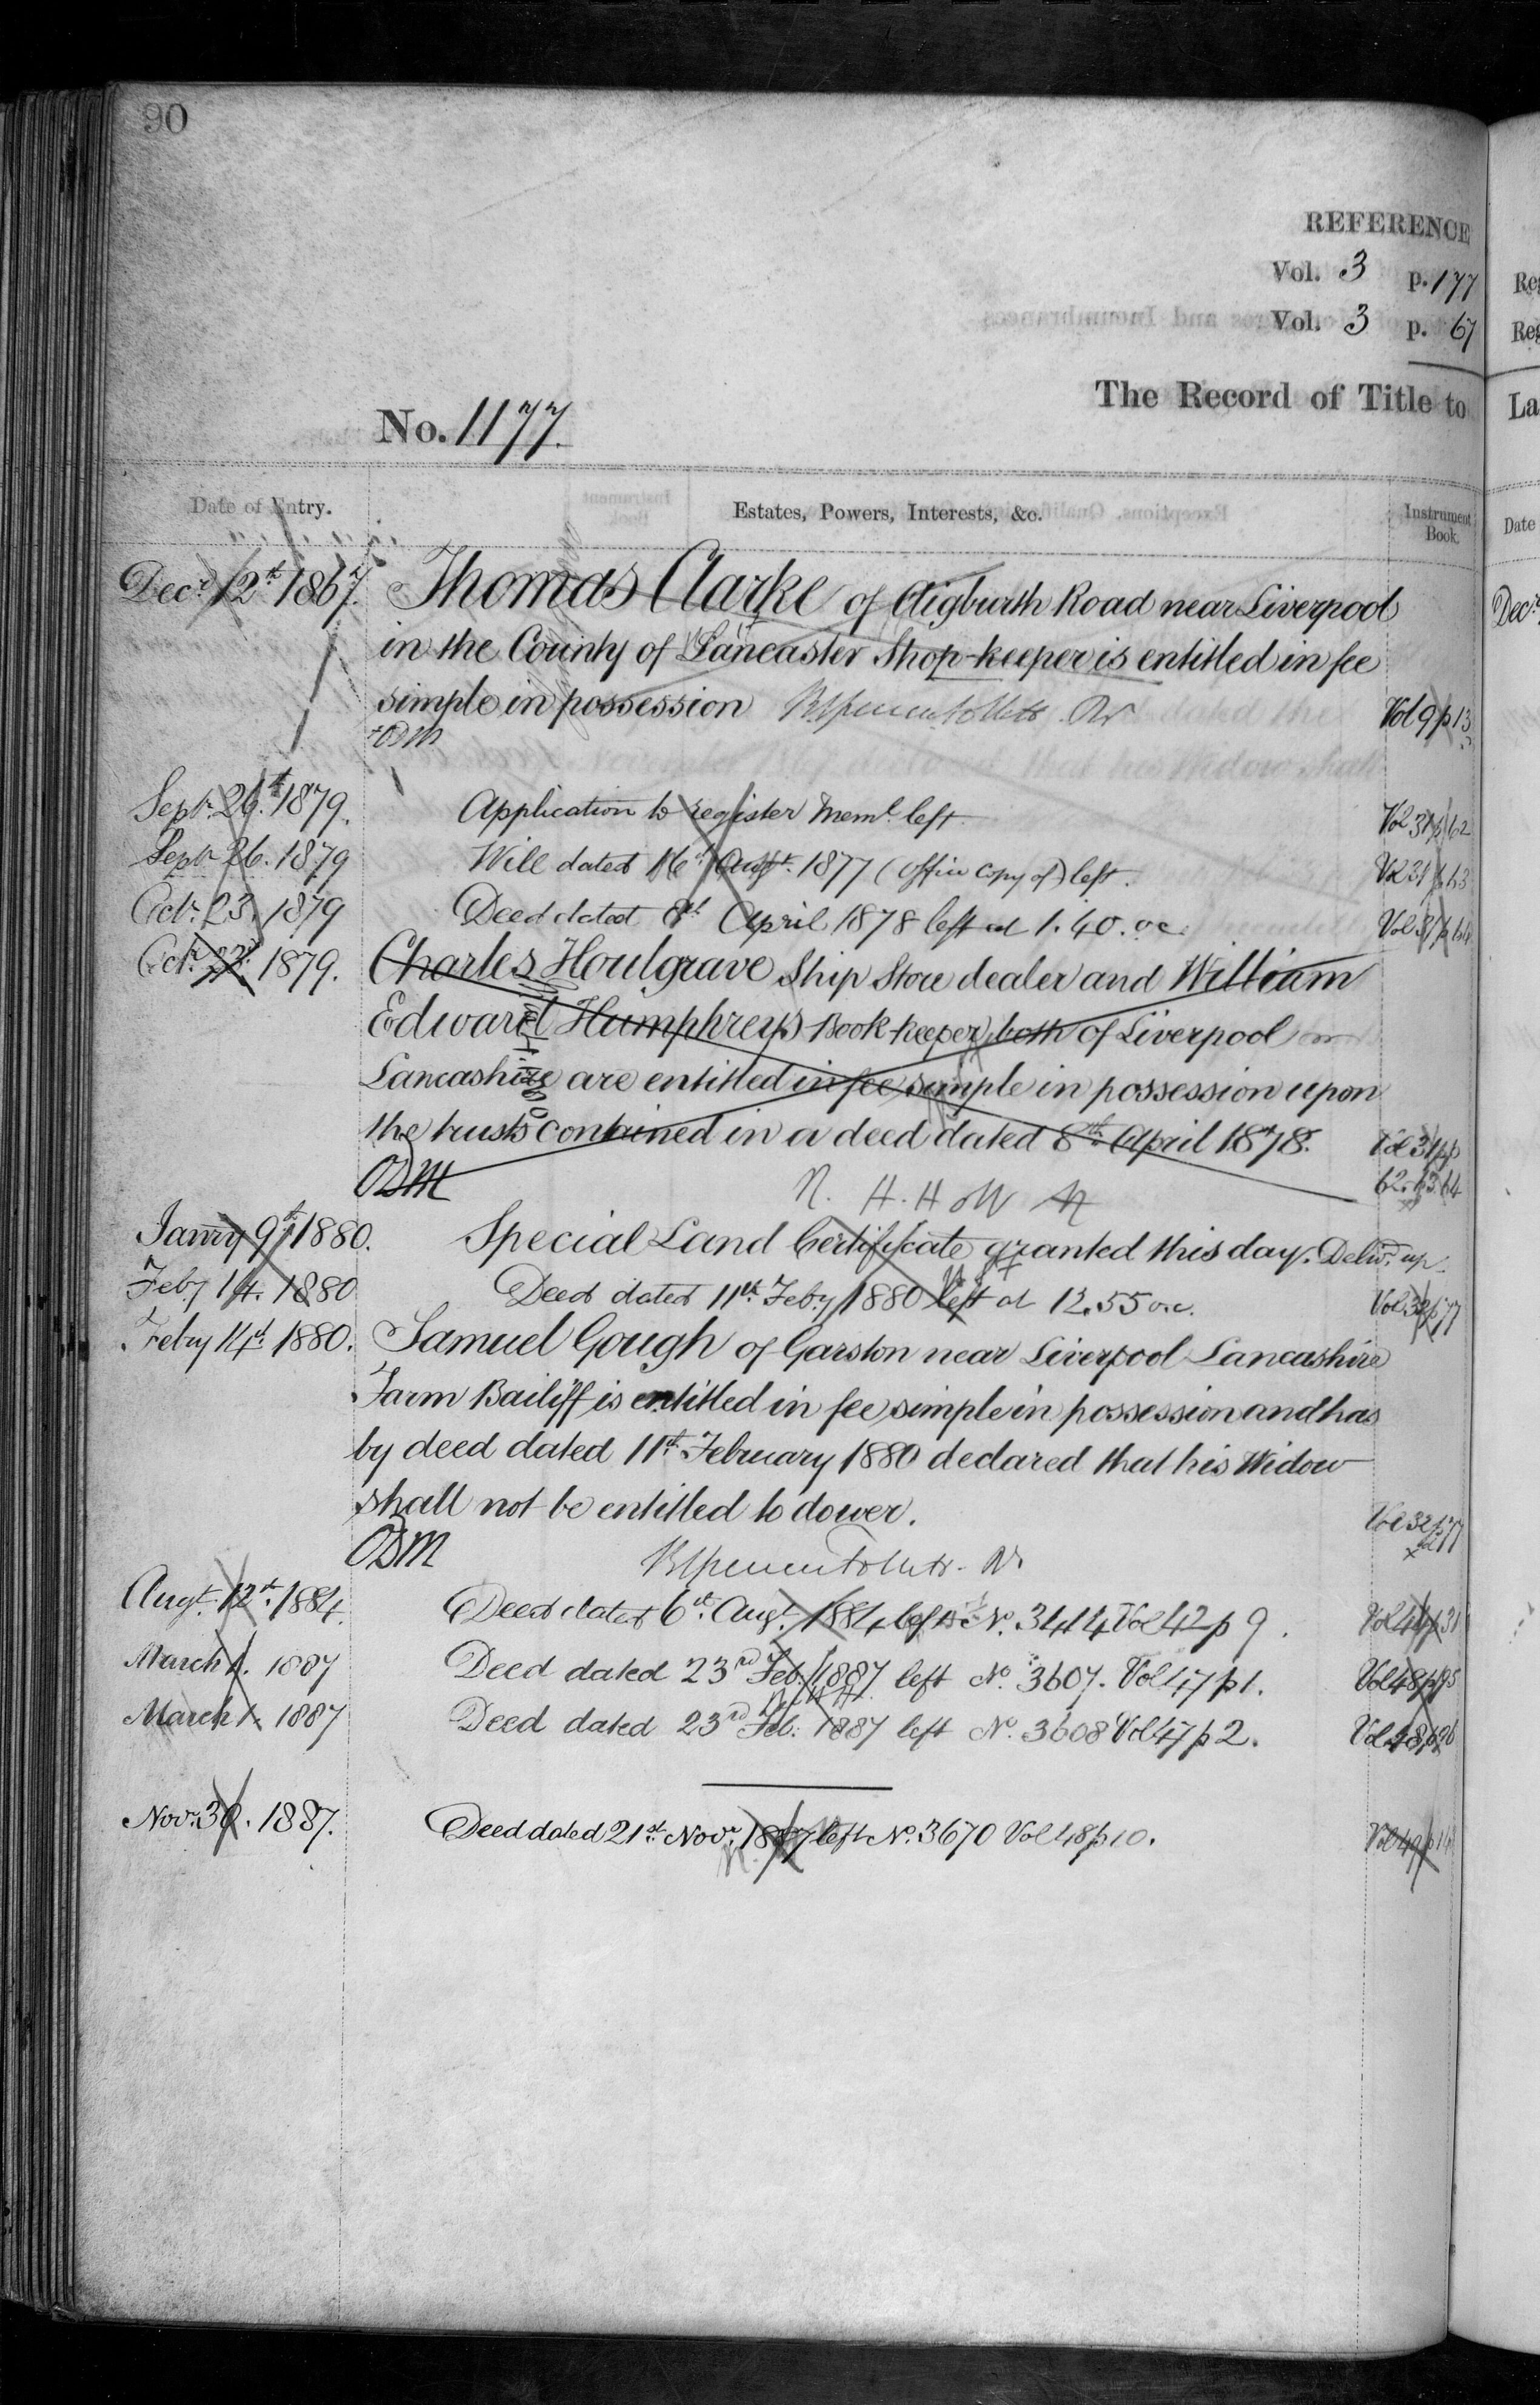 90
REFERENCE
Vol. 3 p. 177
Vol. 3 p. 67
The Record of Title to
No. 1177.
Date of Entry. Estates, Powers, Interests, &c. Instrument Book.
Decr 12th 1867. Thomas Clarke of Aigburth Road near Liverpool
in the County of Lancaster Shop-keeper is entitled in fee
simple in possession Vol 9 p 13
Septr 26th 1879. Application to register Meml left Vol 31 p 62
Septr 26. 1879 Will dated 16th Augt. 1877 (office copy of) left. Vol 31 p 63
Octr 23. 1879 Deed dated 8th April 1878 left at 1.40. oc. Vol 31 p 64
Octr 23rd 1879. Charles Houlgrave Ship Store dealer and William
Edward Humphreys Book-keeper, both of Liverpool
Lancashire are entitled in fee simple in possession upon
the trusts contained in a deed dated 8th April 1878. Vol 31 pp
ODM 62. 63. 64
Janry 9th 1880. Special Land Certificate granted this day. Delivd up.
Feby 14. 1880 Deed dated 11th Feby 1880 left at 12.55 o.c. Vol 32 p 77
Feby 14th 1880. Samuel Gough of Garston near Liverpool Lancashire
Farm Bailiff is entitled in fee simple in possession and has
by deed dated 11th February 1880 declared that his Widow
shall not be entitled to dower. Vol 32 p 77
ODM
Augt. 12th 1884. Deed dated 6th Augt. 1884 left No. 3414 Vol 42 p 9. Vol 44 p 31
March 1. 1887 Deed dated 23rd Feb. 1887 left No. 3607. Vol 47 p 1. Vol 48 p 95
March 1. 1887 Deed dated 23rd Feb. 1887 left No. 3608 Vol 47 p 2. Vol 48 p 96
Novr. 30. 1887. Deed dated 21st Novr. 1887 left No. 3670 Vol 48 p 10. Vol 49 p 14